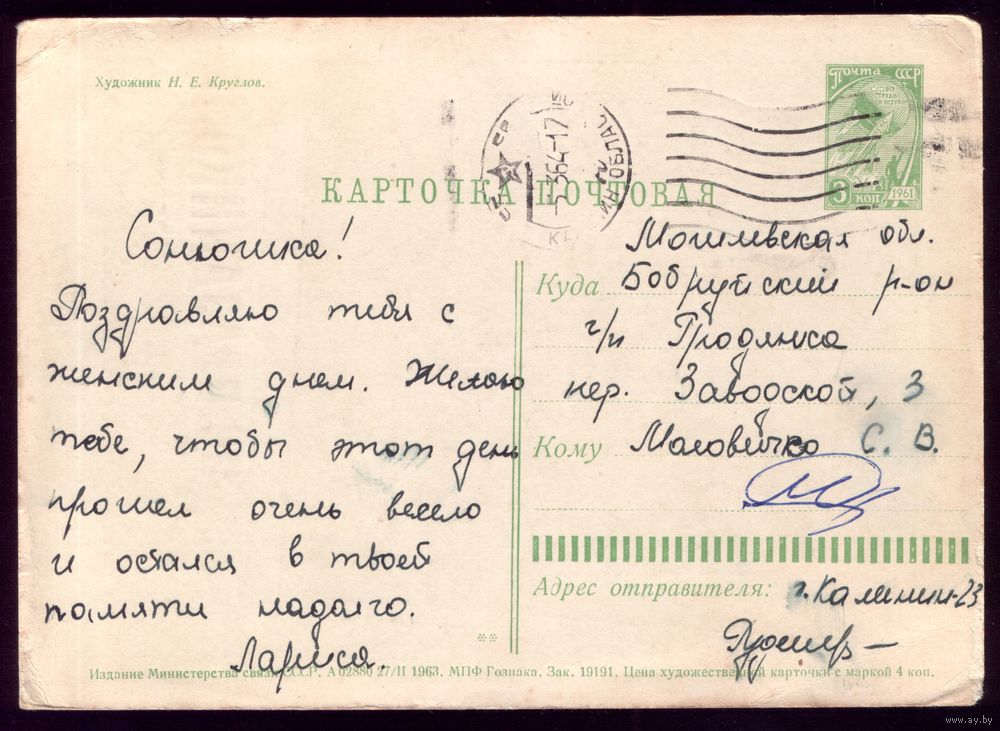 Художник Н. Е. Круглов.
Почта СССР
слава труду и науке
3 коп
1961
-5 3 64-17
КАРТОЧКА ПОЧТОВАЯ
Сонюшка!
Поздравляю тебя с
женским днем. Желаю
тебе, чтобы этот день
прошел очень весело
и остался в твоей
памяти надолго.
Лариса.
Могилевская обл.
Куда Бобруйский р-он
г/п
пер. Заводской, 3
Кому С. В.
Адрес отправителя: г. Калинин-23
Издание Министерства связи СССР. А 02880 27/II 1963. МПФ Гознака. Зак. 19191. Цена художественной карточки с маркой 4 коп.
www.ay.by